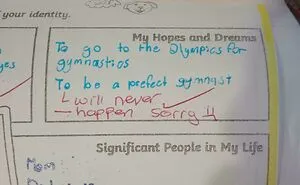 f your identity.
My Hopes and Dreams
To go to the Olympics for
gymnastics
yes
To be a prefect gymnast
will never
happen sorry
Significant People in My Life
Mom